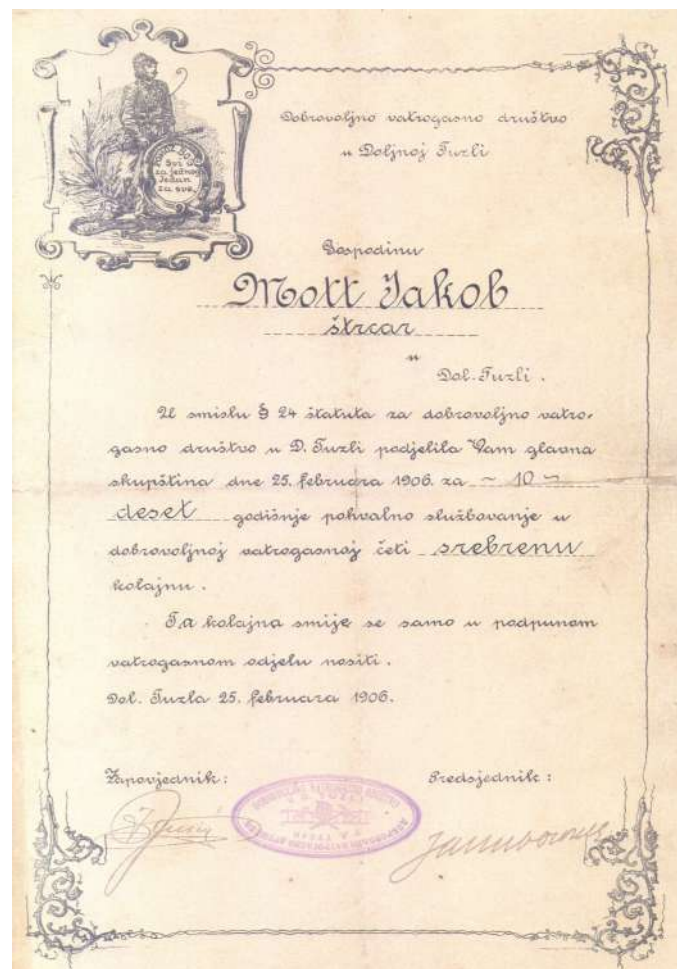 Svi
za jednog
Jedan
za sve.
Dobrovoljno vatrogasno društvo
u Doljnoj Tuzli
Gospodinu
Mott Jakob
štrcar
u
Dol. Tuzli.
U smislu § 24 štatuta za dobrovoljno vatro-
gasno društvo u D. Tuzli podjelila Vam glavna
skupština dne 25. februara 1906. za ~ 10 ~
deset godišnje pohvalno službovanje u
dobrovoljnoj vatrogasnoj četi srebrenu
kolajnu.
Ta kolajna smije se samo u podpunom
vatrogasnom odjelu nositi.
Dol. Tuzla 25. februara 1906.
Zapovjednik: Predsjednik: